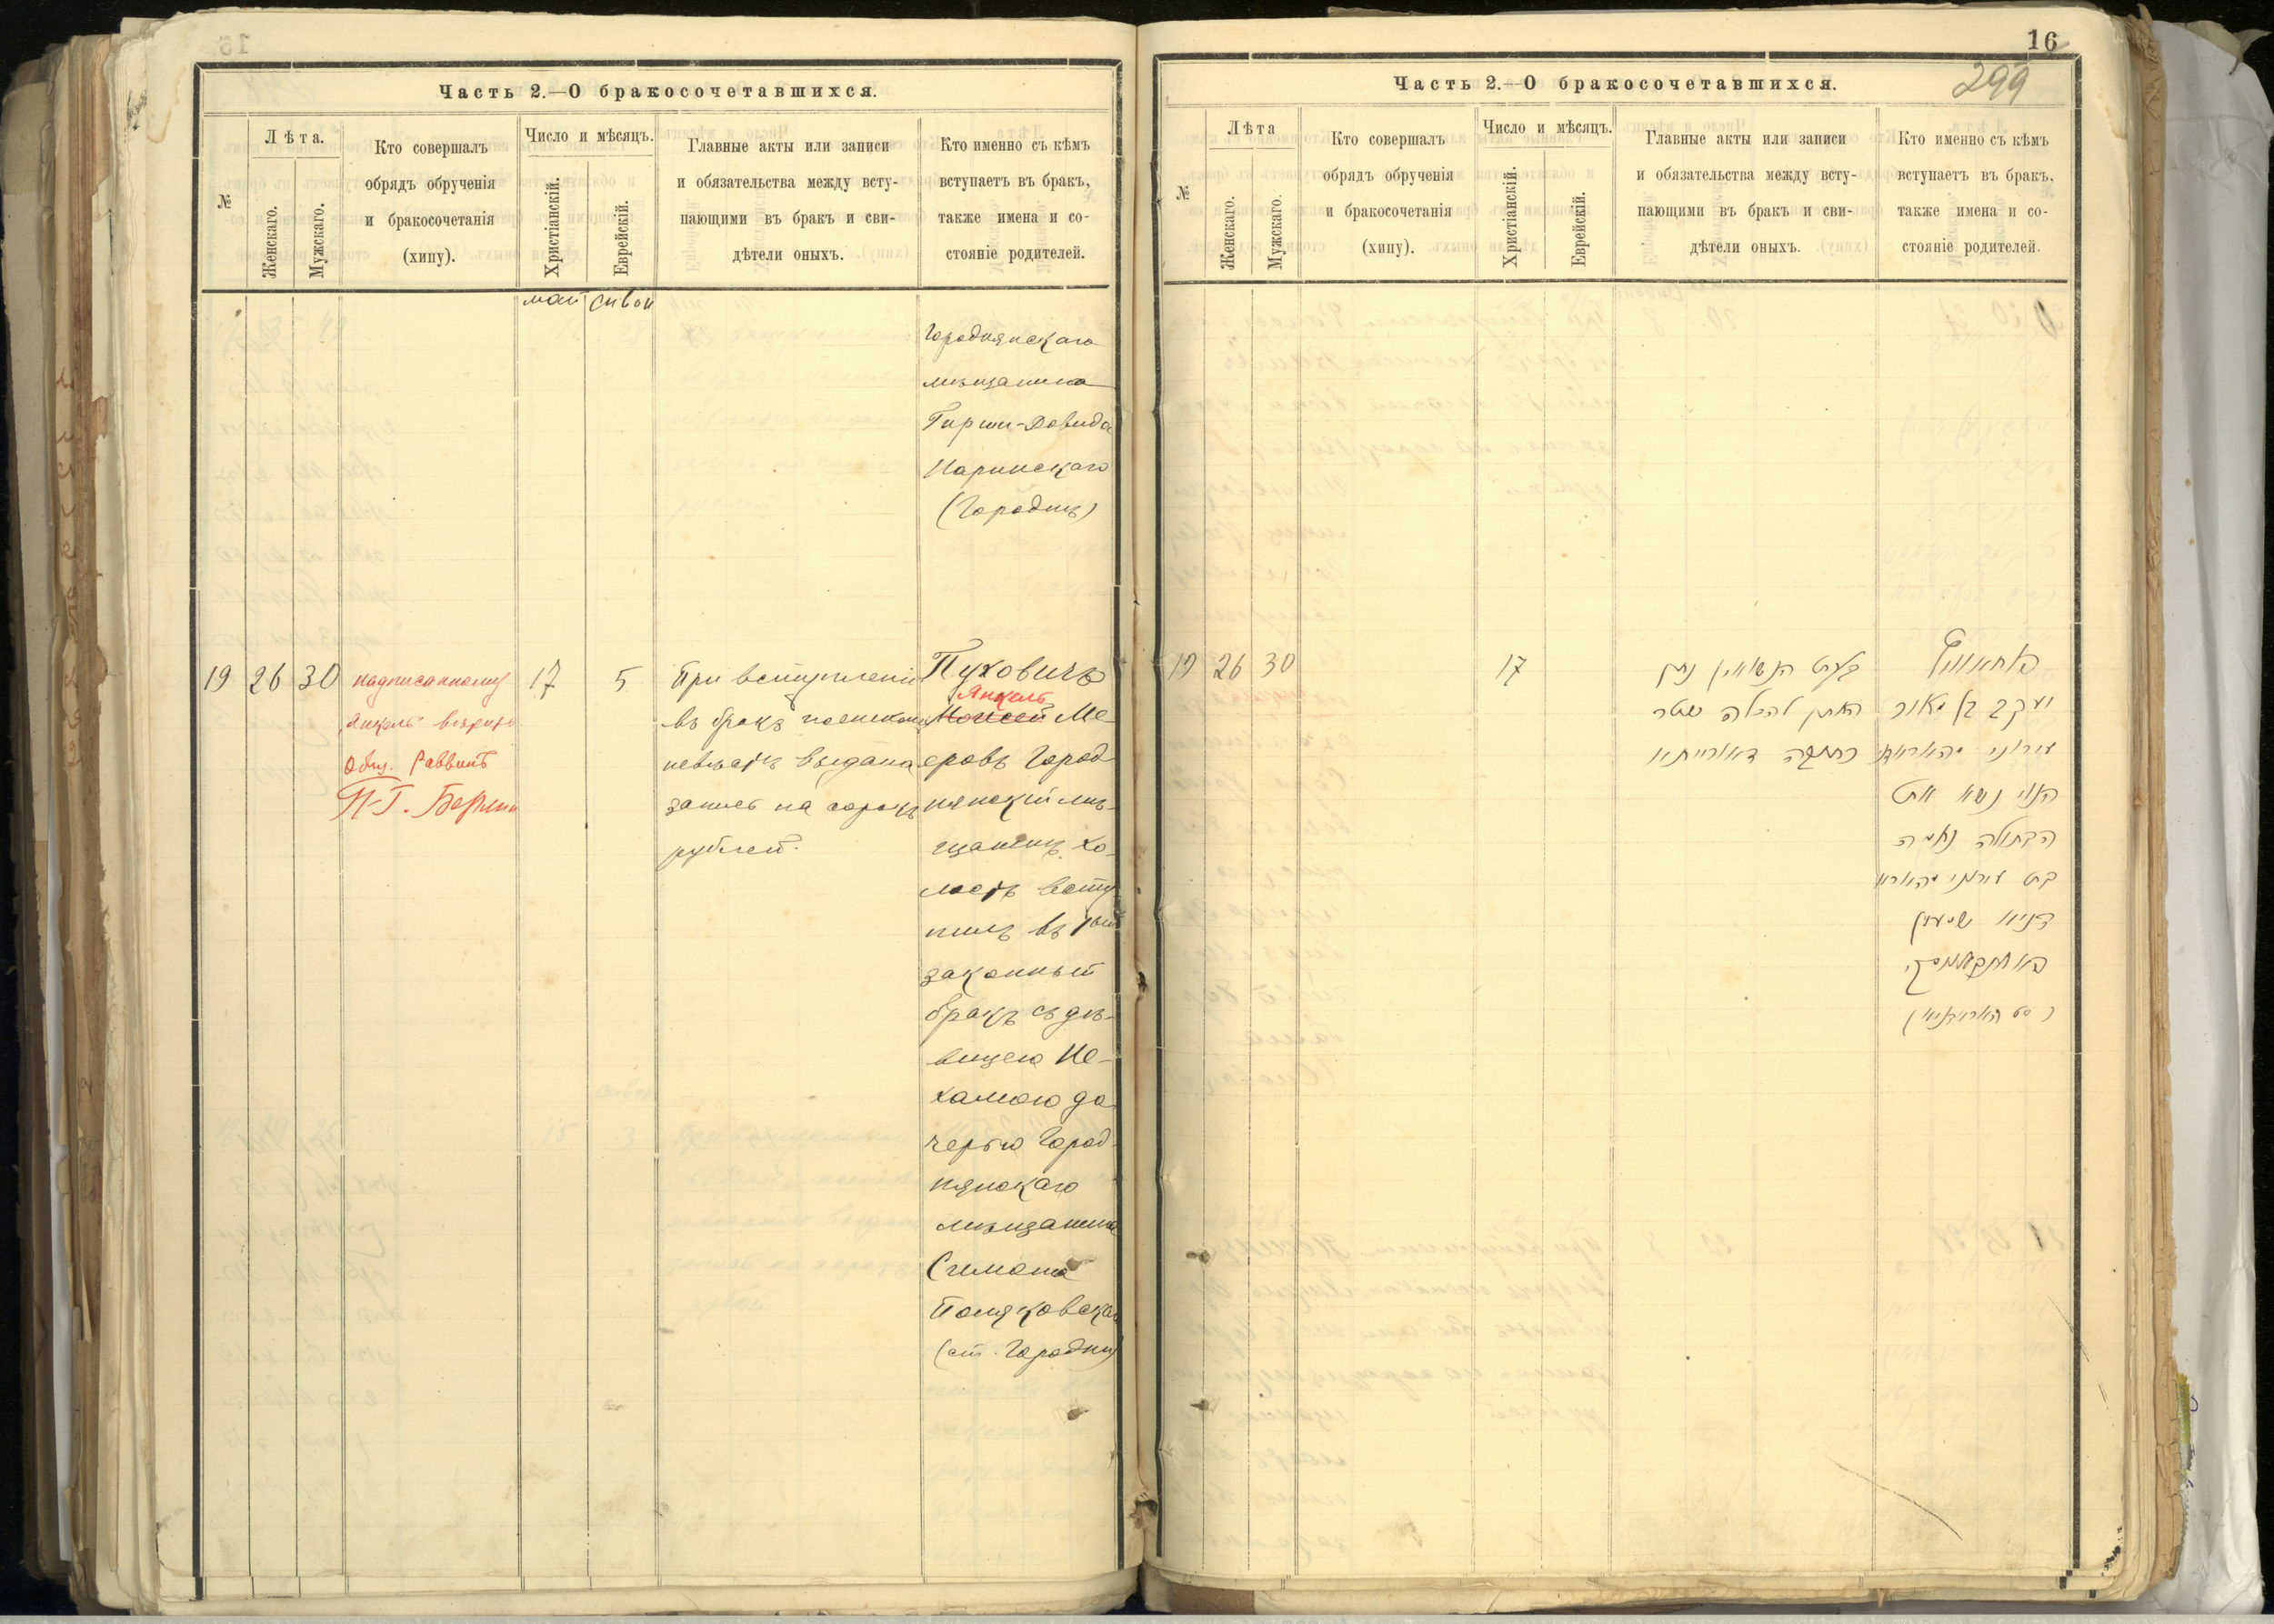 Часть 2.—О бракосочетавшихся.
№
Лѣта.
Женскаго.
Мужскаго.
Кто совершалъ
обрядъ обрученія
и бракосочетанія
(хипу).
Число и мѣсяцъ.
Христіанскій.
Еврейскій.
Главные акты или записи
и обязательства между всту-
пающими въ бракъ и сви-
дѣтели оныхъ.
Кто именно съ кѣмъ
вступаетъ въ бракъ,
также имена и со-
стояніе родителей.
май сивон
Городнянскаго
мѣщанина
Гирши-Довида
(Городнѣ)
19 26 30
надписанному
"Янкель" вѣрить
Общ. Раввинъ
17 5
При вступленіи
въ бракъ
невѣстѣ выдана
запись на сорокъ
рублей.
Пуховичъ
Янкель
Моисей Ме-
еровъ Город-
нянскій мѣ-
щанинъ хо-
лостъ всту-
пилъ въ 1ый
законный
бракъ съ дѣ-
вицею Не-
хамою до
черью Город-
нянскаго
мѣщанина
Симона
(ст. Городня)
16
299
Часть 2.—О бракосочетавшихся.
№
Лѣта
Женскаго.
Мужскаго.
Кто совершалъ
обрядъ обрученія
и бракосочетанія
(хипу).
Число и мѣсяцъ.
Христіанскій.
Еврейскій.
Главные акты или записи
и обязательства между всту-
пающими въ бракъ и сви-
дѣтели оныхъ.
Кто именно съ кѣмъ
вступаетъ въ бракъ,
также имена и со-
стояніе родителей.
19 26 30
17
בעת הנשואין נתן
החתן להכלה שטר
כתובה דאורייתא
יעקב בן מאיר
עירוני
הנ״ל נשא את
הבתולה נחמה
בת עירוני
שמעון